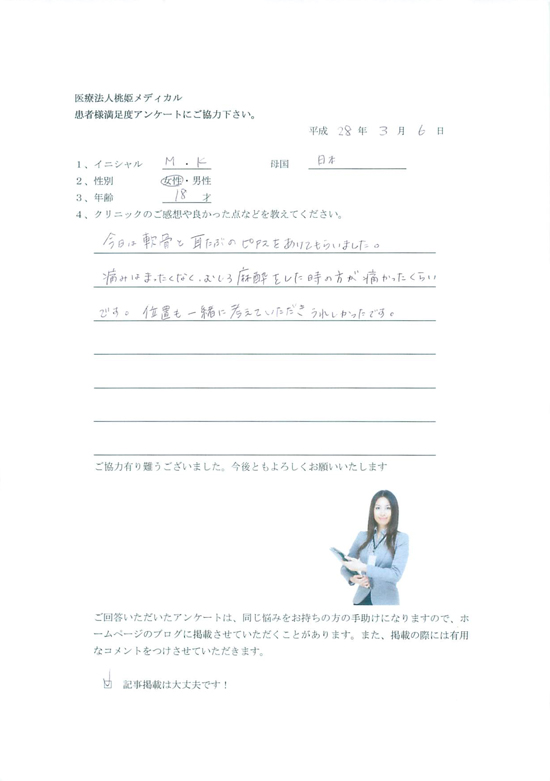 医療法人桃姫メディカル
患者様満足度アンケートにご協力下さい。
平成 28 年 3 月 6 日
1、イニシャル M・K 母国 日本
2、性別 女性・男性
3、年齢 18 才
4、クリニックのご感想や良かった点などを教えてください。
今日は軟骨と耳たぶのピアスをあけてもらいました。
痛みはまったくなく、むしろ麻酔をした時の方が痛かったくらい
です。位置も一緒に考えていただきうれしかったです。
ご協力有り難うございました。今後ともよろしくお願いいたします
ご回答いただいたアンケートは、同じ悩みをお持ちの方の手助けになりますので、ホ
ームページのブログに掲載させていただくことがあります。また、掲載の際には有用
なコメントをつけさせていただきます。
記事掲載は大丈夫です！